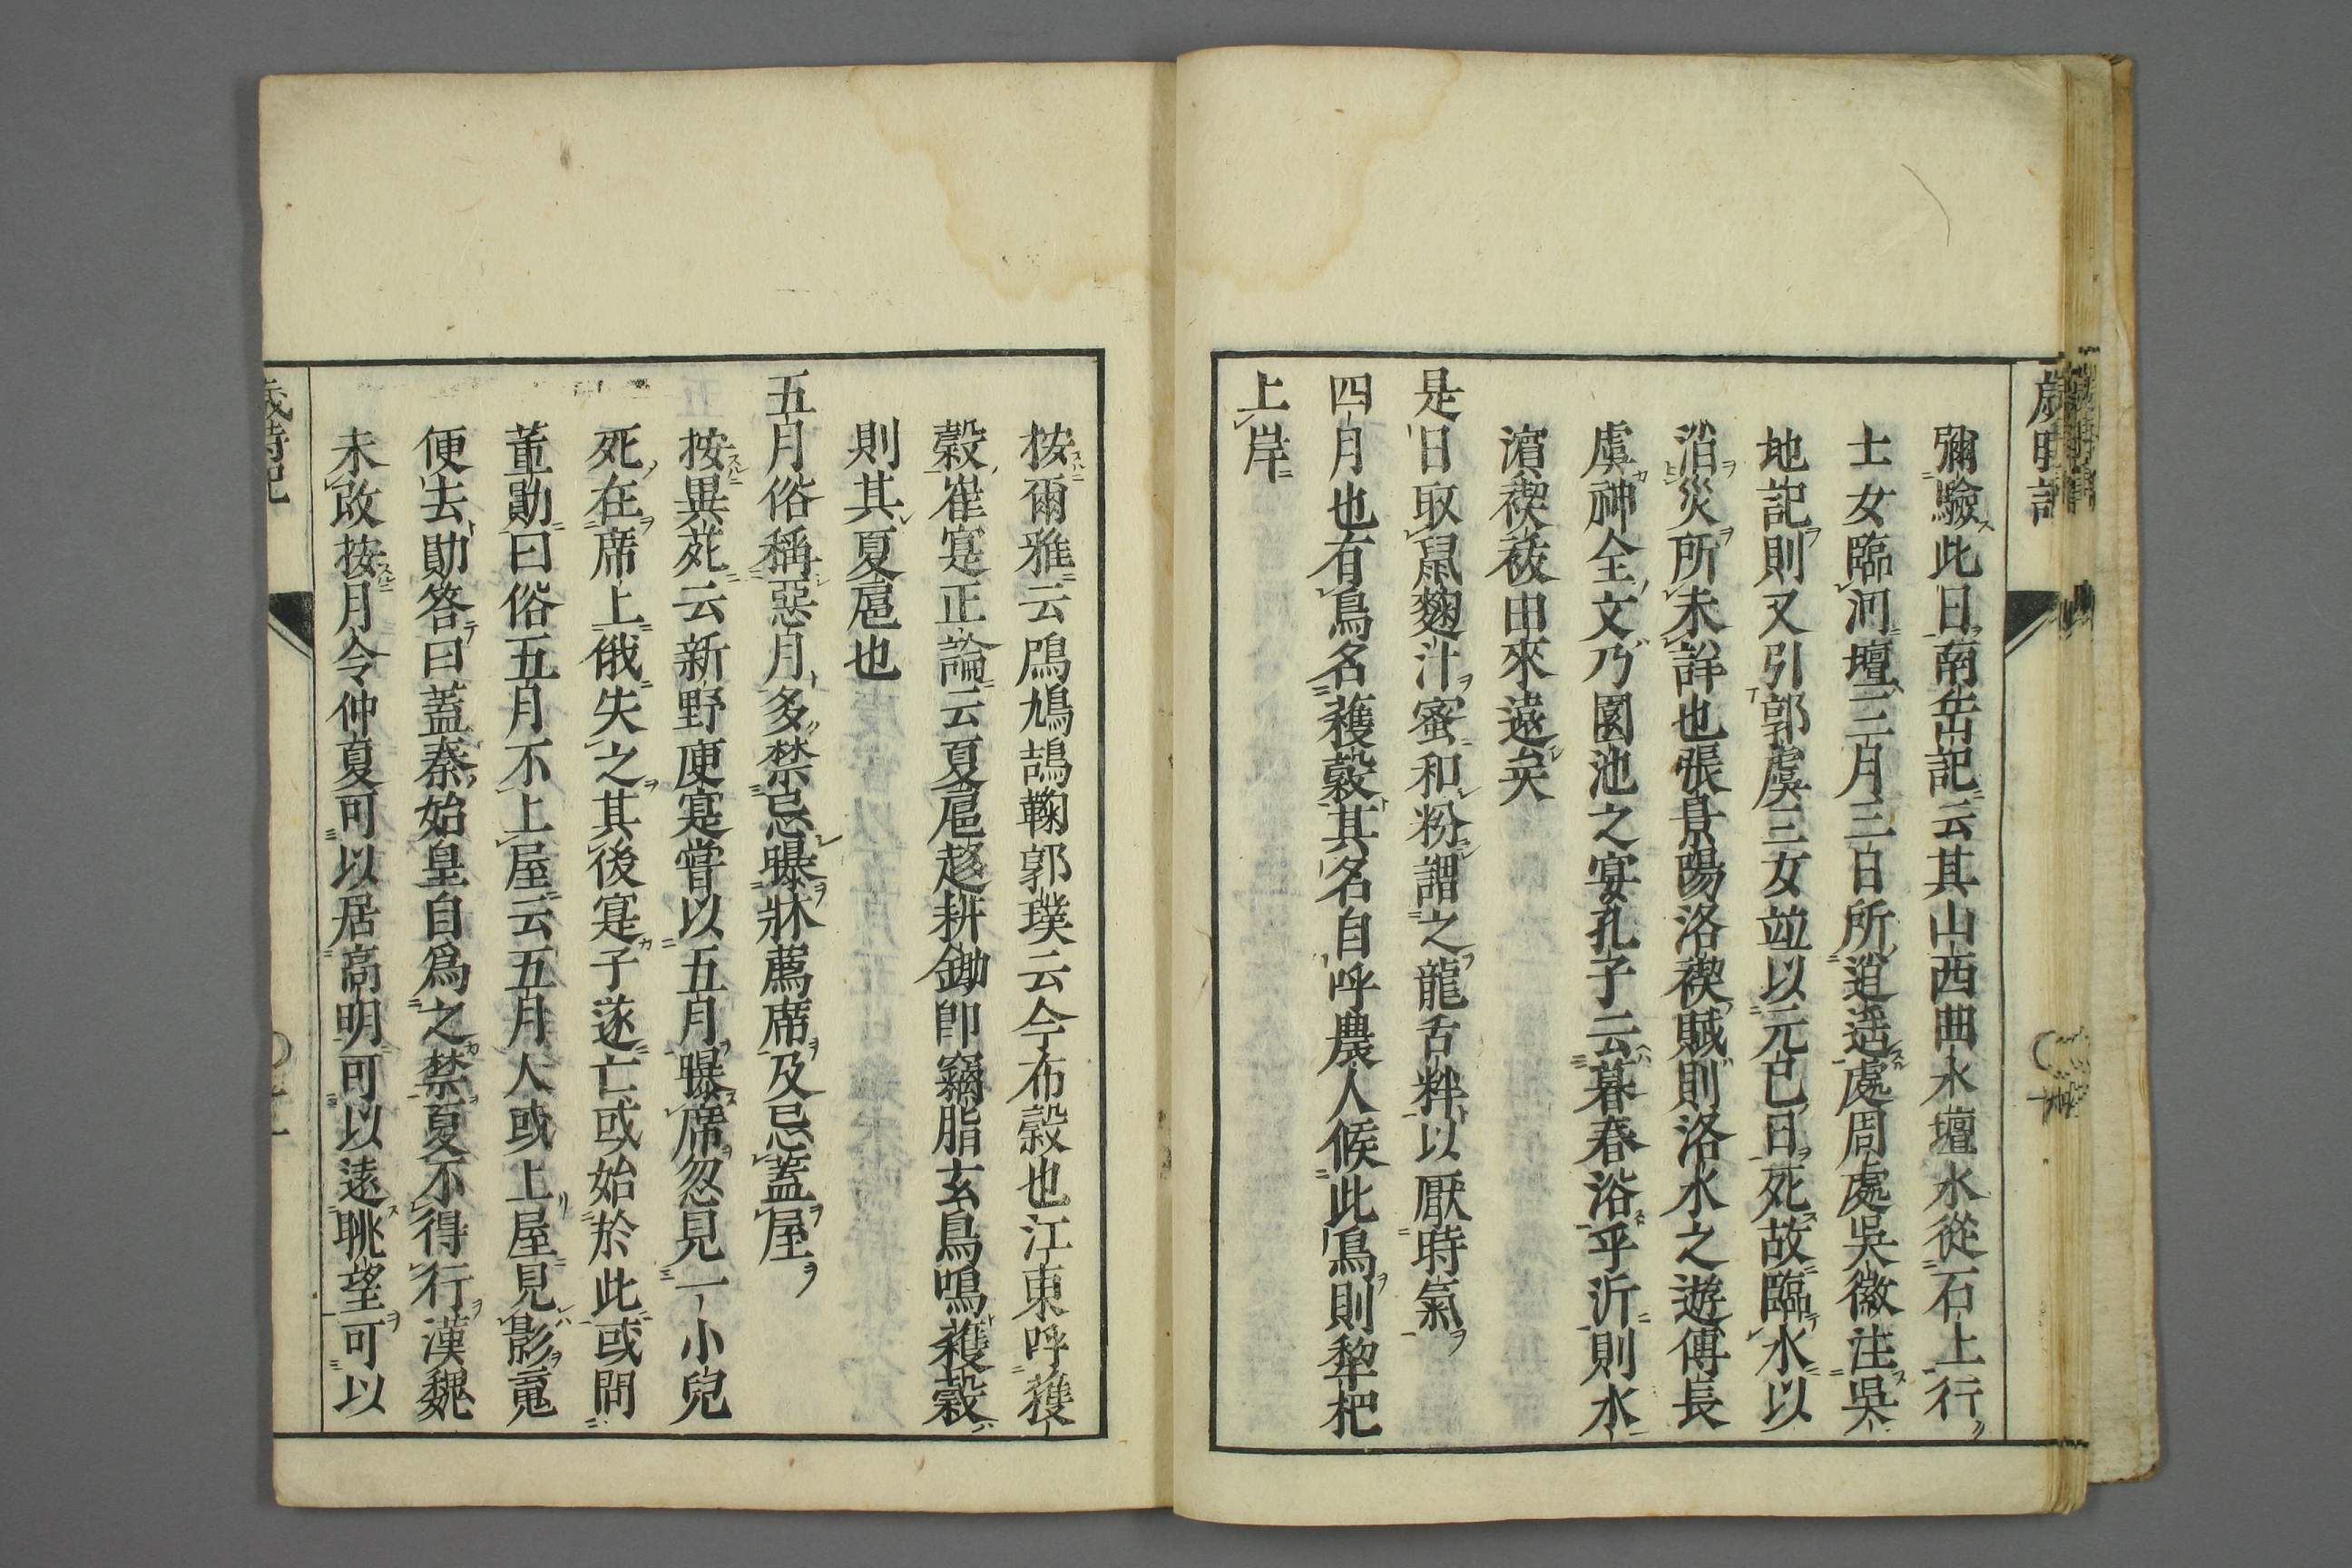 歲時記
彌驗此日南岳記云其山西曲水壇水從石上行
士女臨河壇三月三日所逍遥處周處吳徽注吳
地記則又引郭虞三女並以元巳日死故臨水以
消災所未詳也張景陽洛禊賦則洛水之遊傅長
虞神全文乃園池之宴孔子云暮春浴乎沂則水
濵禊祓由來遠矣
是日取鼠麴汁蜜和粉謂之龍舌䉽以厭時氣
四月也有鳥名穫穀其名自呼農人候此鳥則犂杷
上岸
按爾雅云鳲鳩鴶鞠郭璞云今布穀也江東呼穫
穀崔寔正論云夏扈趍耕鋤即竊脂玄鳥鳴穫穀
則其夏扈也
五月俗稱惡月多禁忌曝牀薦席及忌蓋屋
按異苑云新野庾寔嘗以五月曝席忽見一小兒
死在席上俄失之其後寔子遂亡或始於此或問
董勛曰俗五月不上屋云五月人或上屋見影䰟
便去勛答曰蓋秦始皇自爲之禁夏不得行漢魏
未改按月令仲夏可以居高明可以遠眺望可以
歲時記